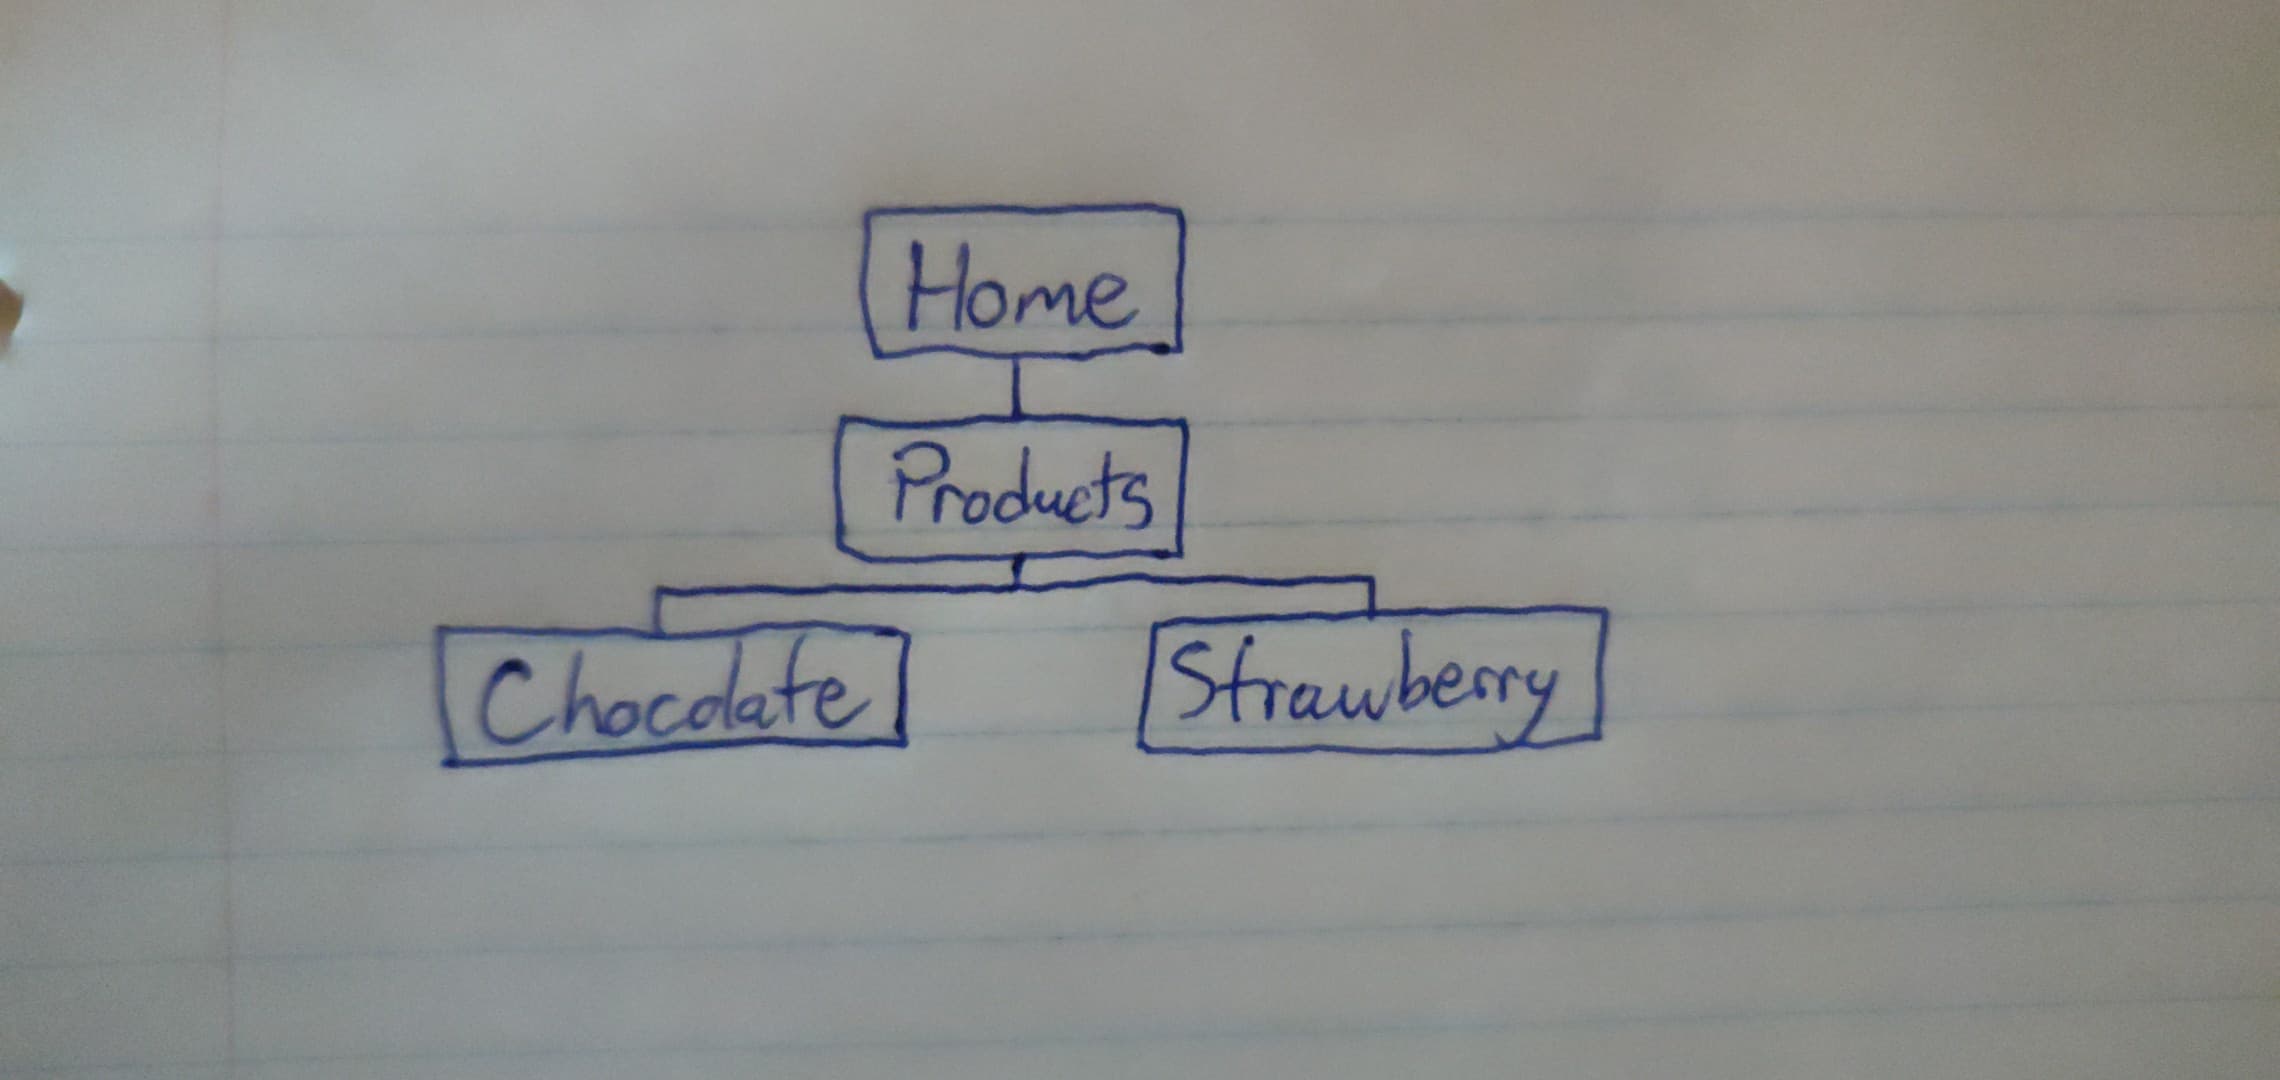 Home
Products
Chocolate
Strawberry